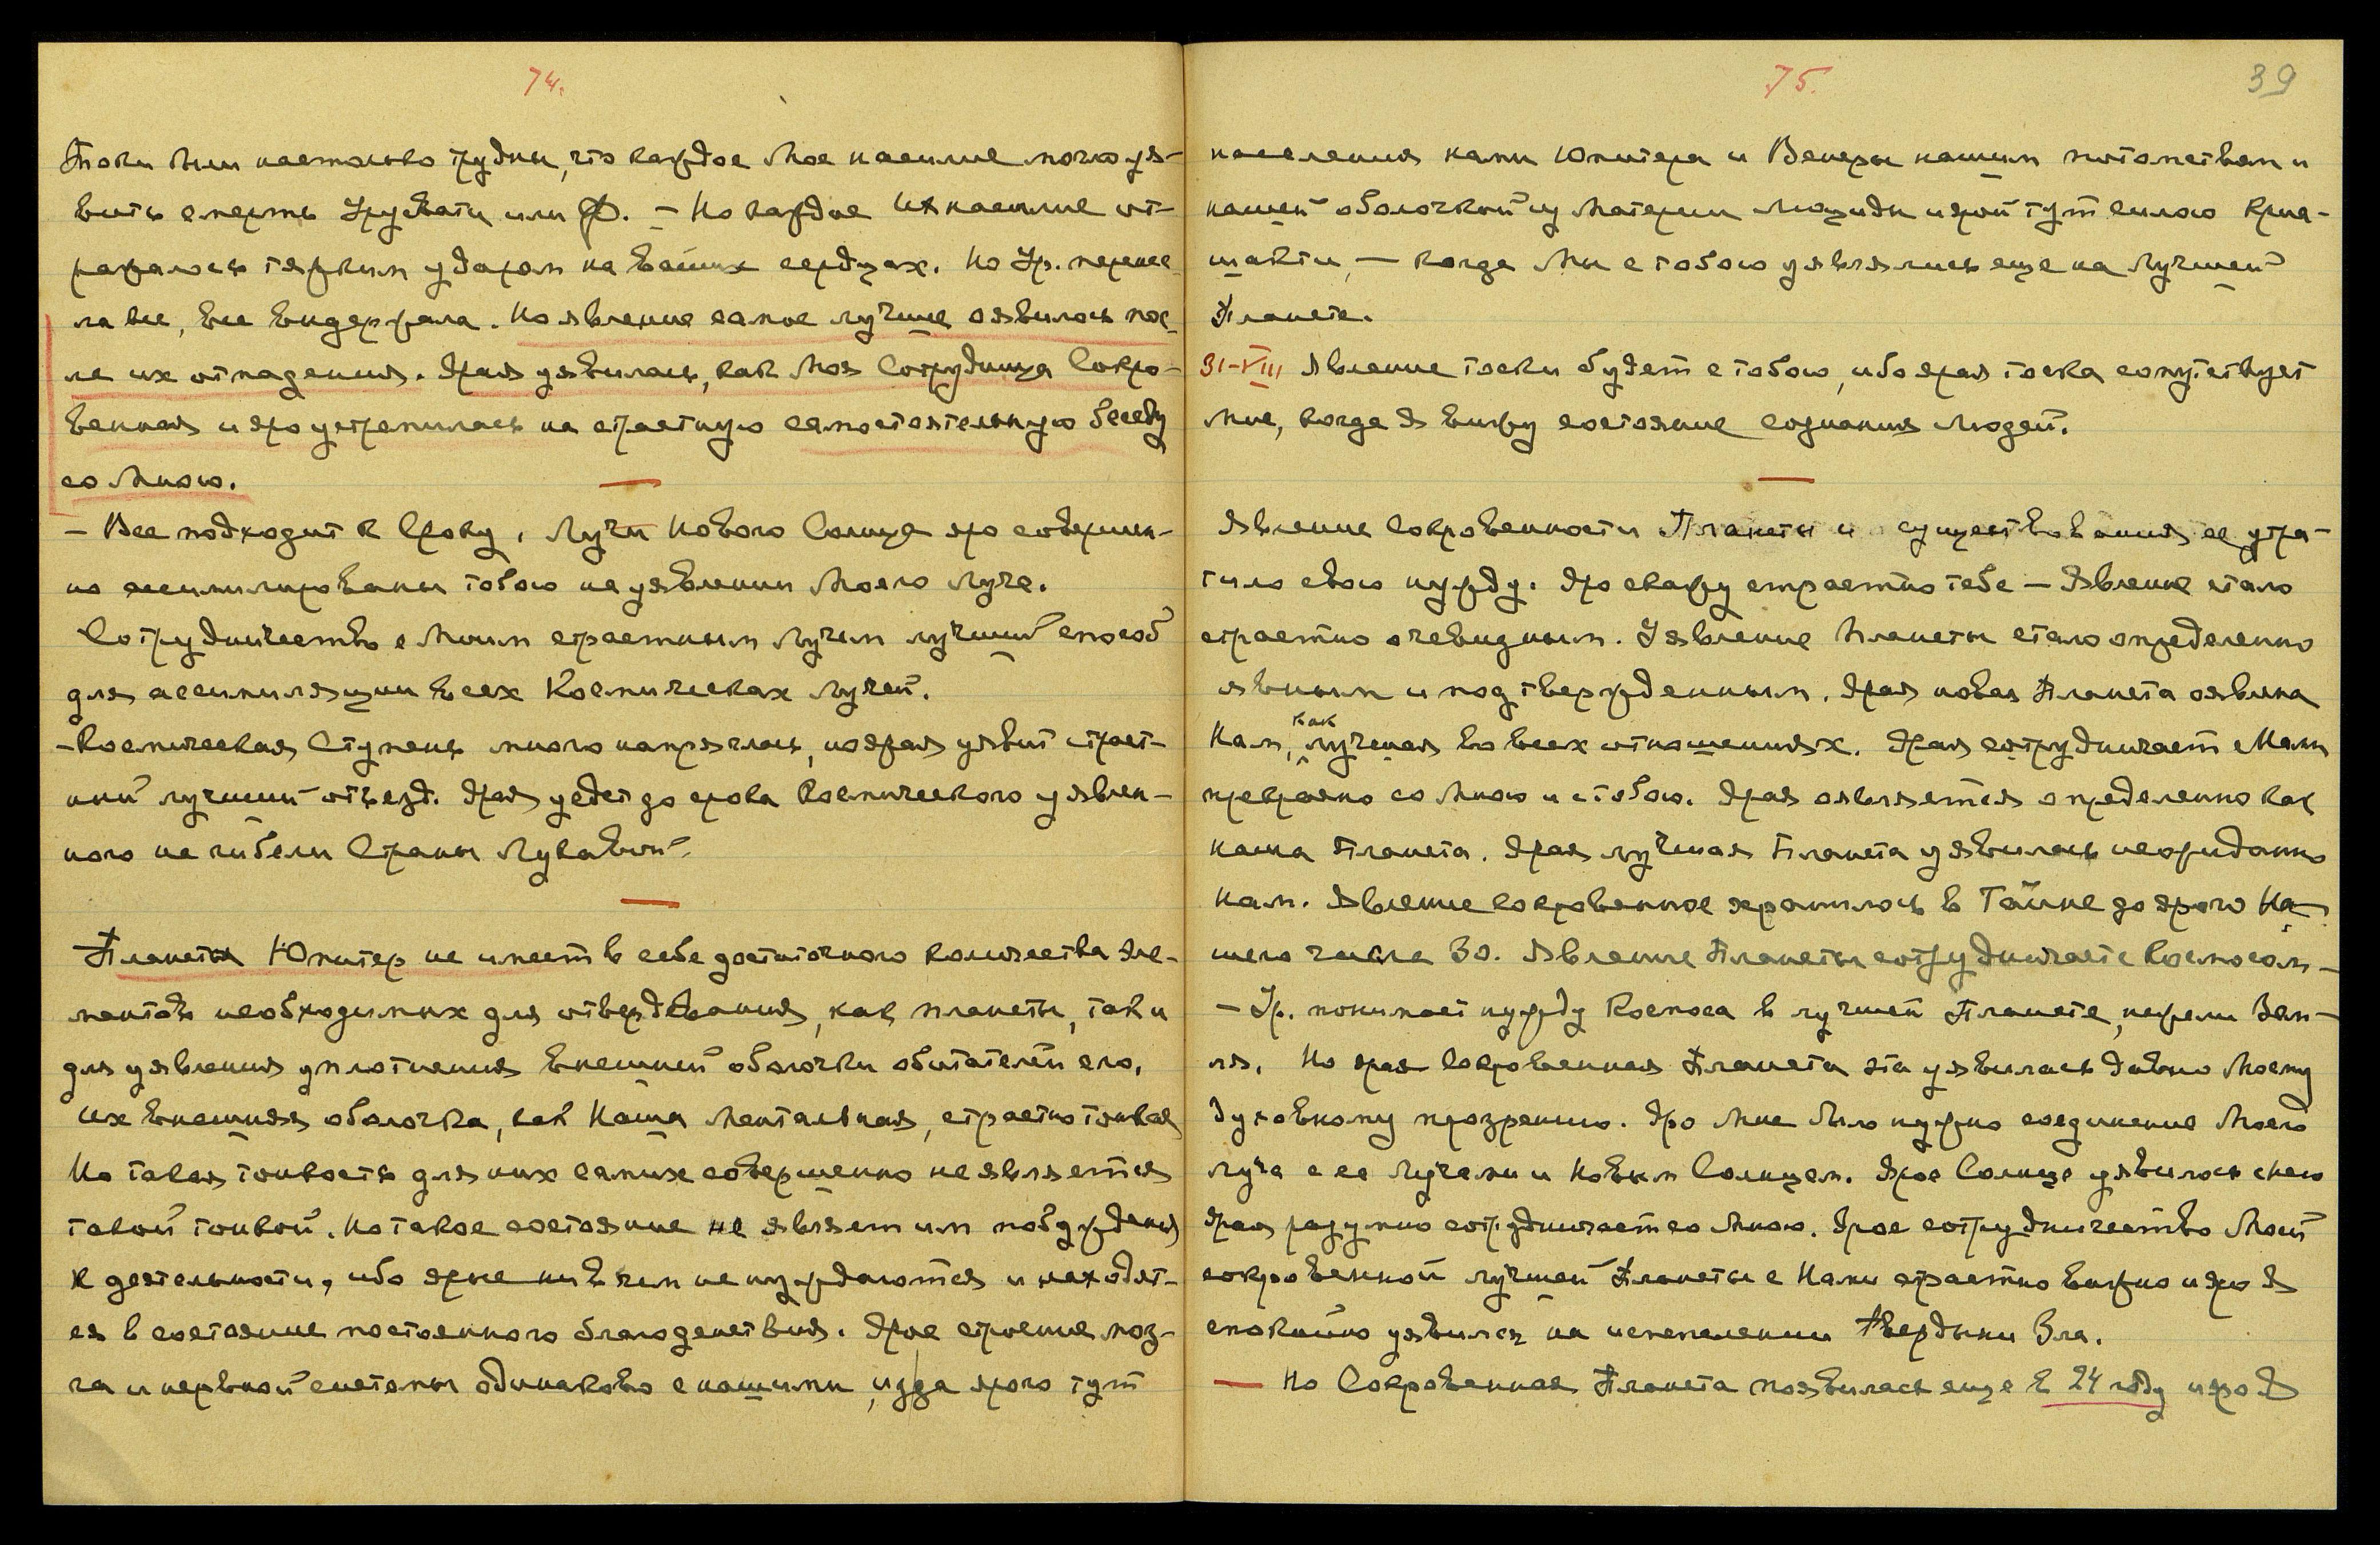 74.
Токи были настолько трудны, что каждое Мое насилие могло уя-
вить смерть Урусвати или Ф. – Но каждое Их насилие от-
ражалось тяжким ударом на ваших сердцах. Но Ур. перенес
ла все, все выдержала. Но явление самое лучшее оявилось пос-
ле их отпадения. Ярая уявилась, как Моя Сотрудница Сокро-
венная и яро устремилась на страстную самостоятельную беседу
со Мною.
– Все подходит к Сроку. Лучи Нового Солнца яро совершен-
но ассимилированы тобою на уявлении Моего Луча.
Сотрудничество с Моим страстным Лучем лучший способ
для ассимиляции всех Космических Лучей.
– Космическая Ступень много напряглась, но ярая уявит страст-
ный лучший отъезд. Ярая уедет до срока Космического уявлен-
ного на гибели Страны Лукавой.
Планета Юпитер не имеет в себе достаточного количества эле-
ментов необходимых для отвердевания, как планеты, так и
для уявления уплотнения внешней оболочки обитателей его.
Их внешняя оболочка, как Наша Ментальная, страстно тонкая
Но такая тонкость для них самих совершенно не является
такой тонкой. Но такое состояние не являет им побуждения
к деятельности, ибо ярые ни в чем не нуждаются и находят-
ся в состояние постоянного благоденствия. Ярое строение моз-
га и нервной системы одинаково с нашими, из-за ярого тут
75.
39
населения нами Юпитера и Венеры нашим потомством и
нашей оболочкой из Материи Люциды и ярой тут силою Крия-
шакти, – когда Мы с тобою уявлялись еще на Лучшей
Планете.
31-VIII Явление тоски будет с тобою, ибо ярая тоска сопутствует
Мне, когда Я вижу состояние сознания людей.
Явление Сокровенности Планеты и существования ее утра-
тило свою нужду. Яро скажу страстно тебе – Явление стало
страстно очевидным. Уявление Планеты стало определенно
явным и подтвержденным. Ярая новая Планета оявлена
Нам, как лучшая во всех отношениях. Ярая сотрудничает с Нами
прекрасно со Мною и с тобою. Ярая оявляется определенно как
наша Планета. Ярая лучшая Планета уявилась неожиданно
Нам. Явление сокровенное хранилось в Тайне до ярого На-
шего числа 30. Явление Планеты сотрудничает с Космосом –
– Ур. понимает нужду Космоса в лучшей Планете, нежели Зем-
ля. Но ярая Сокровенная Планета эта уявилась давно Моему
Духовному прозрению. Яро Мне было нужно соединение Моего
Луча с ее Лучами и Новым Солнцем. Ярое Солнце уявилось с нею
Ярая разумно сотрудничает со Мною. Ярое сотрудничество Моей
сокровенной лучшей Планеты с Нами страстно важно и яро Я
спокойно уявился на испепелении Твердыни Зла.
– Но Сокровенная Планета появилась еще в 24 году и яро Я